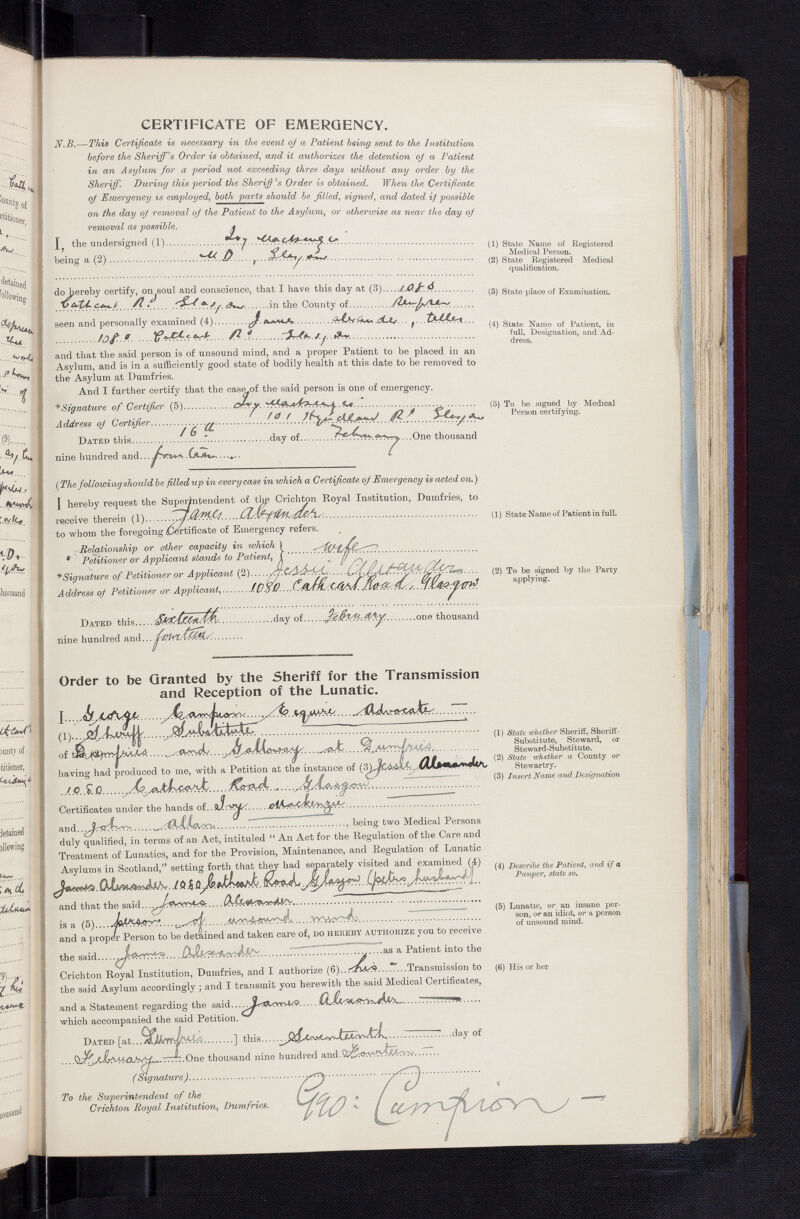 CERTIFICATE OF EMERGENCY.
N.B.—This Certificate is necessary in the event of a Patient being sent to the Institution
before the Sheriff's Order is obtained, and it authorizes the detention of a Patient
in an Asylum for a period not exceeding three days without any order by the
Sheriff. During this period the Sheriff's Order is obtained. When the Certificate
of Emergency is employed, both parts should be filled, signed, and dated if possible
on the day of removal of the Patient to the Asylum, or otherwise as near the day of
removal as possible.
I, the undersigned (1) Ivy Mackenzie
being a (2) M D, Glasgow
do hereby certify, on soul and conscience, that I have this day at (3) 1080
Cathcart Rd Glasgow in the County of Renfrew
seen and personally examined (4) James Alexander, teller
1080 Cathcart Rd Glasgow
and that the said person is of unsound mind, and a proper Patient to be placed in an
Asylum, and is in a sufficiently good state of bodily health at this date to be removed to
the Asylum at Dumfries.
And I further certify that the case of the said person is one of emergency.
*Signature of Certifier (5) Ivy Mackenzie
Address of Certifier 101 Hyndland Rd Glasgow
DATED this 16th day of February One thousand
nine hundred and fourteen
(The following should be filled up in every case in which a Certificate of Emergency is acted on.)
I hereby request the Superintendent of the Crichton Royal Institution, Dumfries, to
receive therein (1) James Alexander
to whom the foregoing Certificate of Emergency refers.
Relationship or other capacity in which
Petitioner or Applicant stands to Patient, } wife
*Signature of Petitioner or Applicant (2) Jessie Alexander
Address of Petitioner or Applicant, 1080 Cathcart Road, Glasgow
DATED this Sixteenth day of February one thousand
nine hundred and fourteen
Order to be Granted by the Sheriff for the Transmission
and Reception of the Lunatic.
I George Campion Esquire Advocate
(1) Sheriff Substitute
of Dumfries and Galloway at Dumfries
having had produced to me, with a Petition at the instance of (3) Jessie Alexander
1080 Cathcart Road Glasgow
Certificates under the hands of Ivy Mackenzie
and John Allan, being two Medical Persons
duly qualified, in terms of an Act, intituled "An Act for the Regulation of the Care and
Treatment of Lunatics, and for the Provision, Maintenance, and Regulation of Lunatic
Asylums in Scotland," setting forth that they had separately visited and examined (4)
James Alexander 1080 Cathcart Road Glasgow (petrs husband)
and that the said James Alexander
is a (5) person of unsound mind
and a proper Person to be detained and taken care of, DO HEREBY AUTHORIZE you to receive
the said James Alexander as a Patient into the
Crichton Royal Institution, Dumfries, and I authorize (6) his Transmission to
the said Asylum accordingly; and I transmit you herewith the said Medical Certificates,
and a Statement regarding the said James Alexander
which accompanied the said Petition.
DATED [at Dumfries ] this Seventeenth day of
February One thousand nine hundred and Fourteen
(Signature)
Geo: Campion
To the Superintendent of the
Crichton Royal Institution, Dumfries.
(1) State Name of Registered
Medical Person.
(2) State Registered Medical
qualification.
(3) State place of Examination.
(4) State Name of Patient, in
full, Designation, and Ad-
dress.
(5) To be signed by Medical
Person certifying.
(1) State Name of Patient in full.
(2) To be signed by the Party
applying.
(1) State whether Sheriff, Sheriff-
Substitute, Steward, or
Steward-Substitute.
(2) State whether a County or
Stewartry.
(3) Insert Name and Designation
(4) Describe the Patient, and if a
Pauper, state so.
(5) Lunatic, or an insane per-
son, or an idiot, or a person
of unsound mind.
(6) His or her